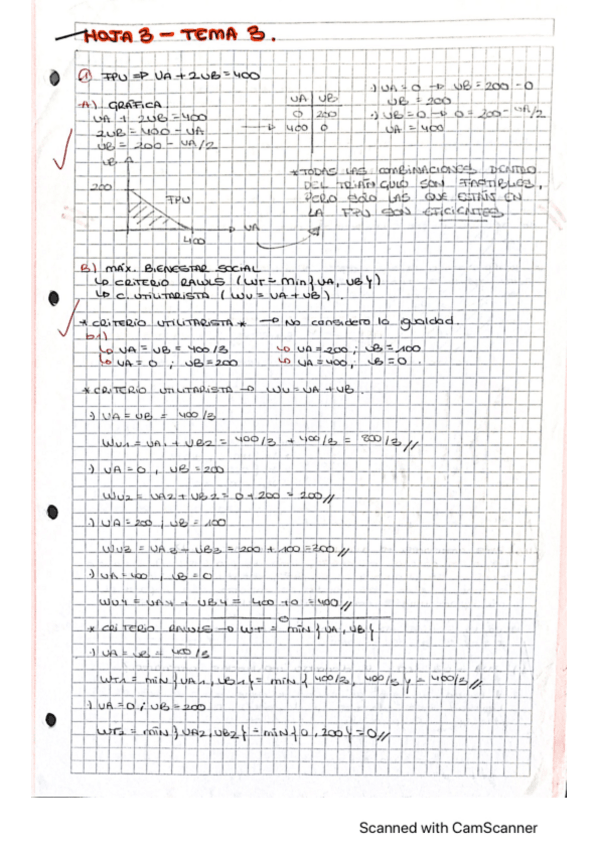 HOJA 3 - TEMA 3.
① FPU => UA + 2UB = 400
A) GRÁFICA
UA + 2UB = 400
2UB = 400 - UA
UB = 200 - UA/2
UA | UB
0 | 200
400 | 0
·) UA = 0 → UB = 200 - 0
UB = 200
·) UB = 0 → 0 = 200 - UA/2
UA = 400
UB
200
FPU
400
UA
* TODAS LAS COMBINACIONES DENTRO
DEL TRIÁNGULO SON FACTIBLES,
PERO SOLO LAS QUE ESTÁN EN
LA FPU SON EFICIENTES
B) MÁX. BIENESTAR SOCIAL
↳ CRITERIO RAWLS (WR = min{UA, UB})
↳ C. UTILITARISTA (WU = UA + UB).
* CRITERIO UTILITARISTA * → No considera la igualdad.
b1)
↳ UA = UB = 400/3
↳ UA = 200 ; UB = 100
↳ UA = 0 ; UB = 200
↳ UA = 400, UB = 0.
* CRITERIO UTILITARISTA → WU = UA + UB.
·) UA = UB = 400/3.
WU1 = UA1 + UB2 = 400/3 + 400/3 = 800/3 //
·) UA = 0, UB = 200
WU2 = UA2 + UB2 = 0 + 200 = 200 //
·) UA = 200 ; UB = 100
WU3 = UA3 + UB3 = 200 + 100 = 200 //
·) UA = 400, UB = 0
WU4 = UA4 + UB4 = 400 + 0 = 400 //
* CRITERIO RAWLS → WR = MIN{UA, UB}
·) UA = UB = 400/3
WR1 = MIN{UA1, UB1} = MIN{400/3, 400/3} = 400/3 //
·) UA = 0 ; UB = 200
WR2 = MIN{UA2, UB2} = MIN{0, 200} = 0 //
Scanned with CamScanner